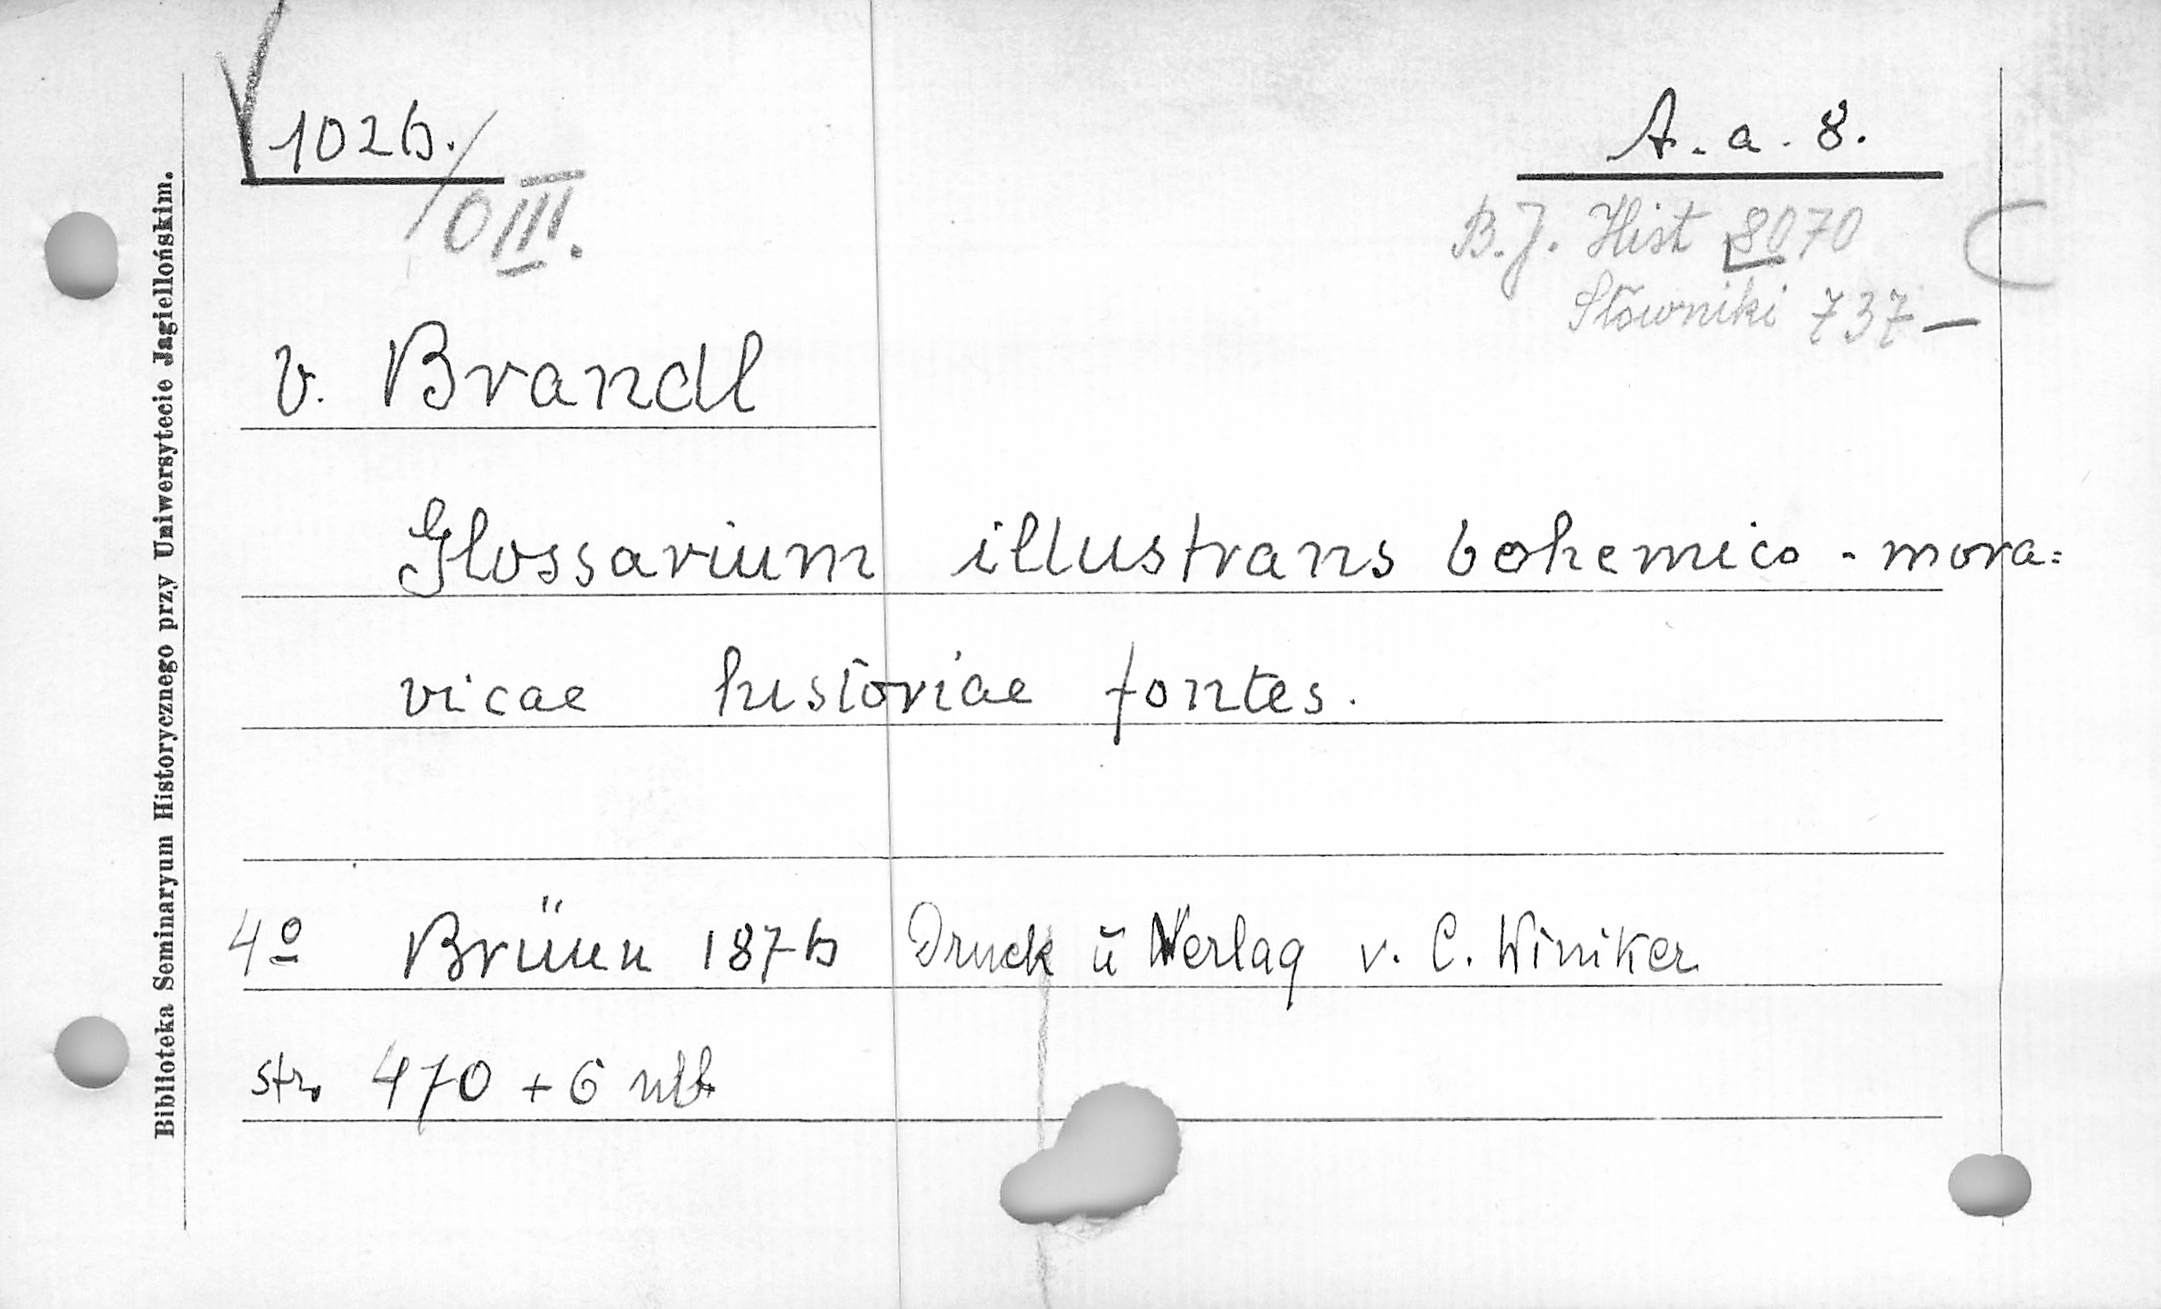 1026.
/O III.
A. a. 8.
B.J. Hist 8070
Słowniki 737 —
V. Brandl
Glossarium illustrans bohemico - mora=
vicae historiae fontes.
4º Brünn 1876 Druck ū Verlag v. C. Winiker
str. 470 + 6 nlb
Biblioteka Seminaryum Historycznego przy Uniwersytecie Jagiellońskim.